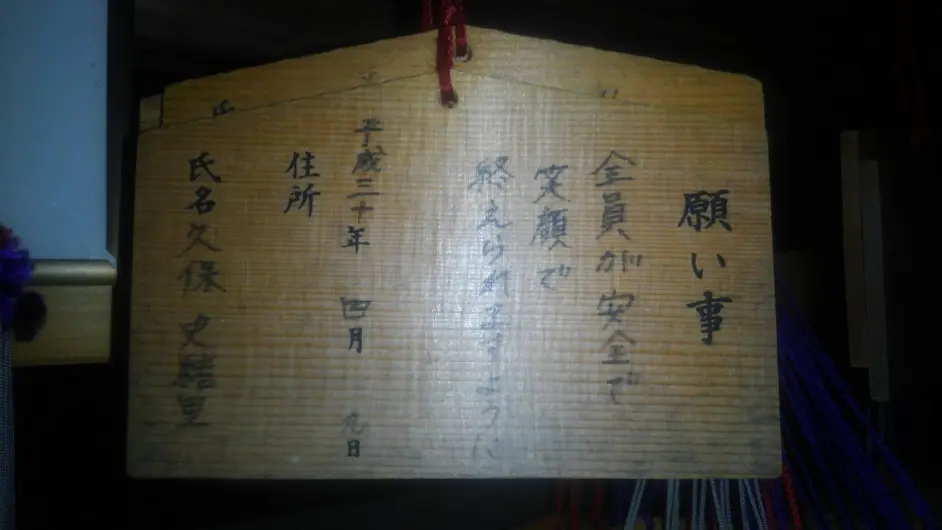 願い事
全員が安全で
笑顔で
終えられますように
平成三十年 四月 九日
住所
氏名 久保 史緒里